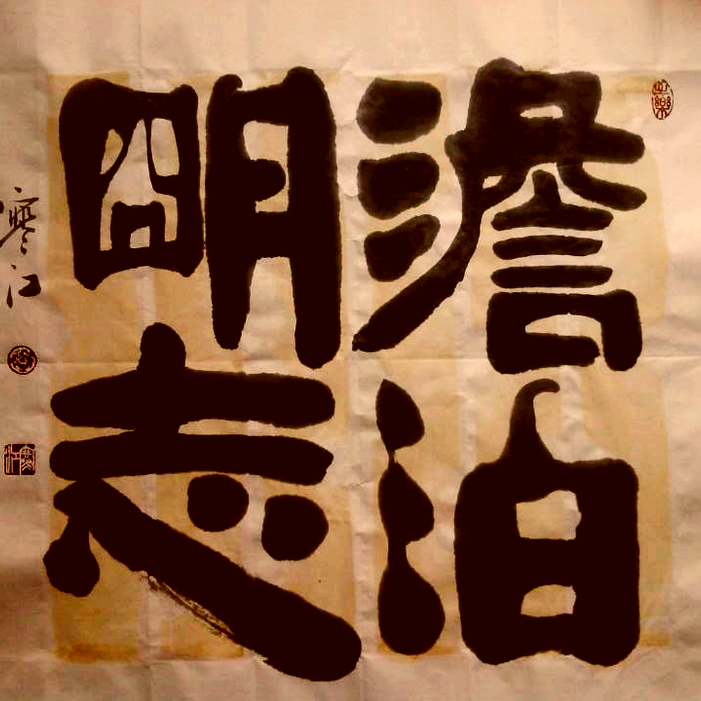 澹泊
明志
寒江